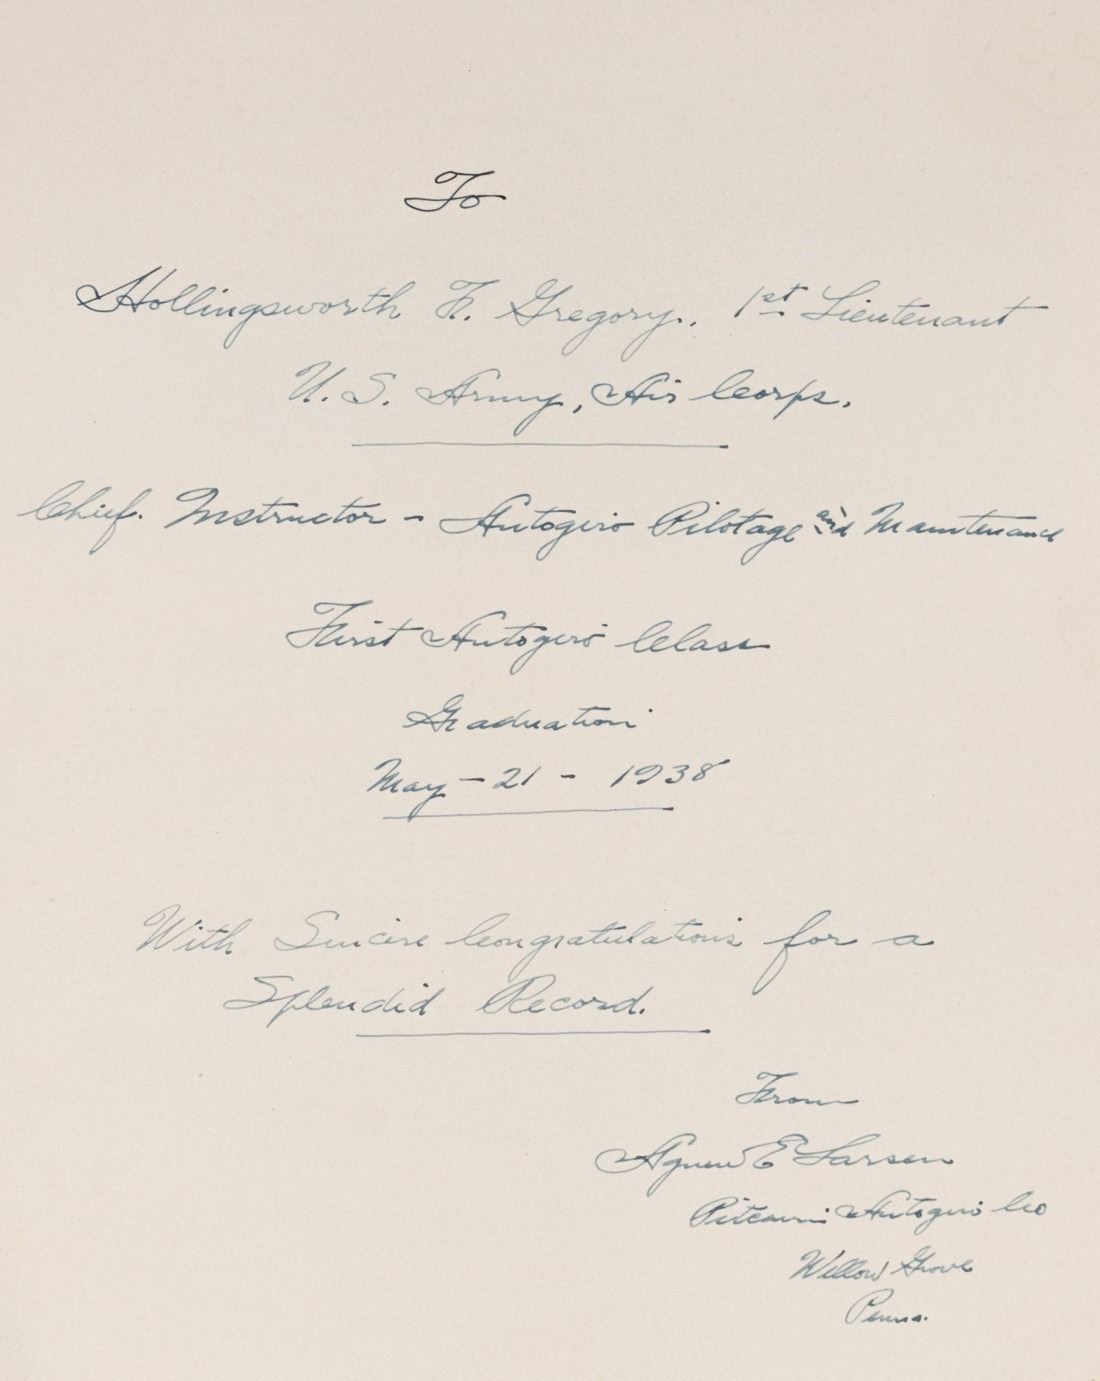 To
Hollingsworth F. Gregory. 1st Lieutenant
U. S. Army, Air Corps.
Chief. Instructor - Autogiro Pilotage and Maintenance
First Autogiro Class
Graduation
May - 21 - 1938
With Sincere Congratulations for a
Splendid Record.
From
Agnew E Larsen
Pitcairn Autogiro Co
Willow Grove
Penna.